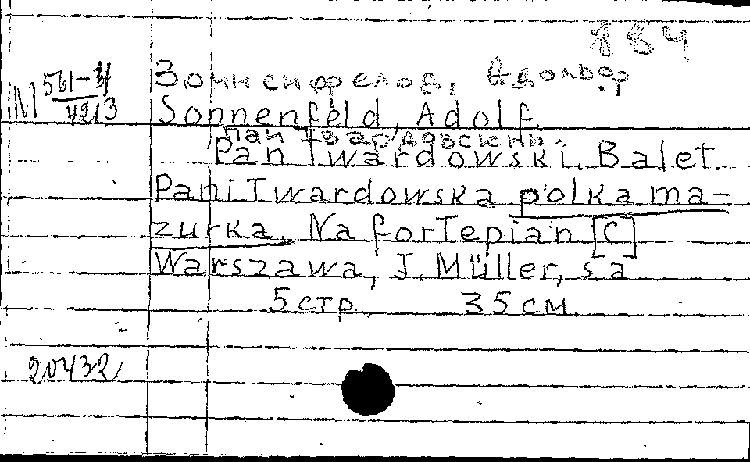 884
М 561-34
4213
Зонненфельд, Адольф
Sonnenfeld, Adolf.
Пан Твардовский.
Pan Twardowski. Balet.
Pani Twardowska polka ma-
zurka. Na fortepian [C]
Warszawa, J. Müller, s a
5 стр. 35 см.
20432